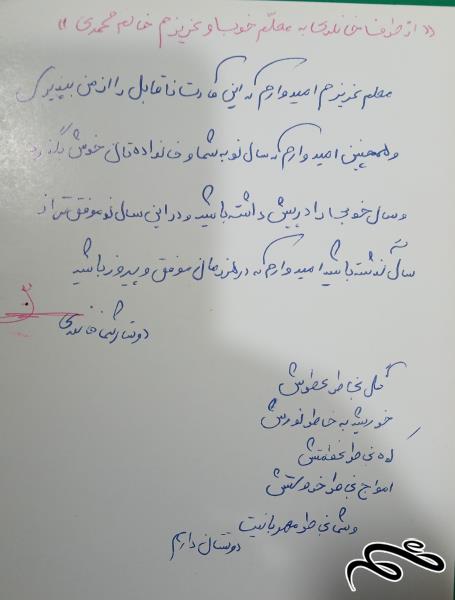 « از طرف خانلری به معلّم خوب و عزیزم خانم محمدی »
معلم عزیزم امیدوارم که این کارت ناقابل را از من بپذیری
وهمچنین امیدوارم که سال نو به شما و خانواده تان خوش بگذرد
وسال خوبی را در پیش داشته باشید و در این سال نو موفق تر از
سال گذشته باشید امیدوارم که در زندگیتان موفق و پیروز باشید
دوستدار شما خانلری
گل بخاطر عطرش
خورشید به خاطر نورش
کوه بخاطر عظمتش
امواج بخاطر خروشش
وشما بخاطر مهربانیت
دوستتان دارم